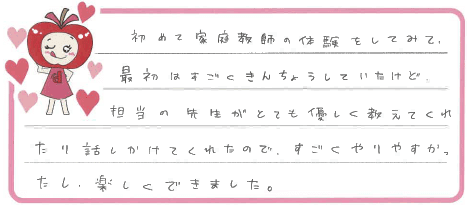 初めて家庭教師の体験をしてみて、
最初はすごくきんちょうしていたけど、
担当の先生がとても優しく教えてくれ
たり話しかけてくれたので、すごくやりやすかっ
たし、楽しくできました。